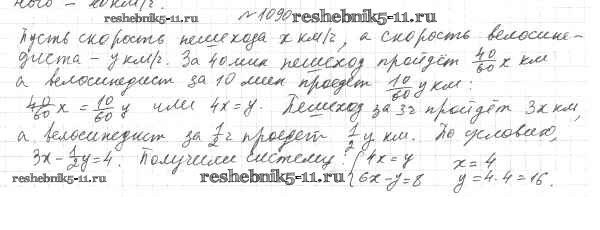 ного – 20 км/ч.
reshebnik5-11.ru №1090 reshebnik5-11.ru
Пусть скорость пешехода x км/ч, а скорость велосипе-
диста – y км/ч. За 40 мин пешеход пройдёт 40/60 x км
а велосипедист за 10 мин проедет 10/60 y км:
40/60 x = 10/60 y или 4x = y. Пешеход за 3ч пройдёт 3x км,
а велосипедист за 1/2 ч проедет 1/2 y км. По условию,
3x - 1/2 y = 4. Получили систему: { 4x = y x = 4
reshebnik5-11.ru reshebnik5-11.ru { 6x - y = 8 y = 4·4 = 16.